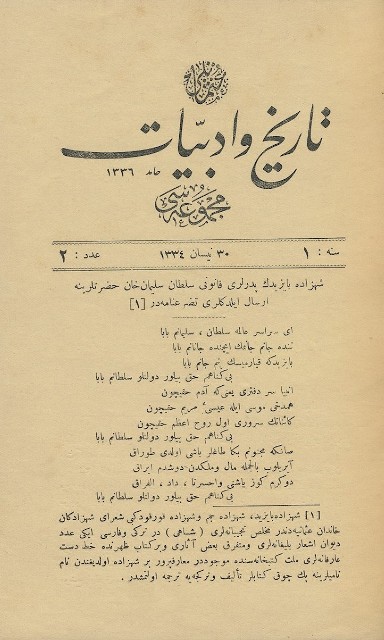 عثمانلی
تاریخ و ادبیات
حامد ١٣٣٦
مجموعه‌سی
سنه : ١
٣٠ نیسان ١٣٣٤
عدد : ٢
شهزاده بایزیدك پدرلری قانونی سلطان سلیمان خان حضرتلرینه
ارسال ایلدكلری تضرعنامه‌در [١]
ای سراسر عالمه سلطان ، سلیمانم بابا
تنده جانم جانمك ایچنده جانانم بابا
بایزیدكه قیارمیسك بنم جانم بابا
بی‌گناهم حق بیلور دولتلو سلطانم بابا
انبیا سر دفتری یعنی‌كه آدم حقیچون
همدخی موسی ایله عیسی‌ٔ مریم حقیچون
كائناتك سروری اول روح اعظم حقیچون
بی‌گناهم حق بیلور دولتلو سلطانم بابا
صانكه مجنونم بكا طاغلر باشی اولدی طوراق
آیریلوب بالجمله مال وملكدن دوشدم ایراق
دوكرم كوز یاشنی واحسرتا ، داد ، الفراق
بی‌گناهم حق بیلور دولتلو سلطانم بابا
[١] شهزاده بایزید، شهزاده جم وشهزاده قورقودكبی شعرای شهزادكان
خاندان عثمانیه‌دندر مخلص نجیبانه‌لری (شاهی) در تركی وفارسی ایكی عدد
دیوان اشعار بلیغانه‌لری ومتفرق بعض آثاری وبر كتاب ظهرنده خط دست
عارفانه‌لری ملت كتبخانه‌سنده موجوددر معارفپرور بر شهزاده اولدیغندن نام
نامیلرینه پك چوق كتابلر تألیف وتركجه‌یه ترجمه اولنمشدر.